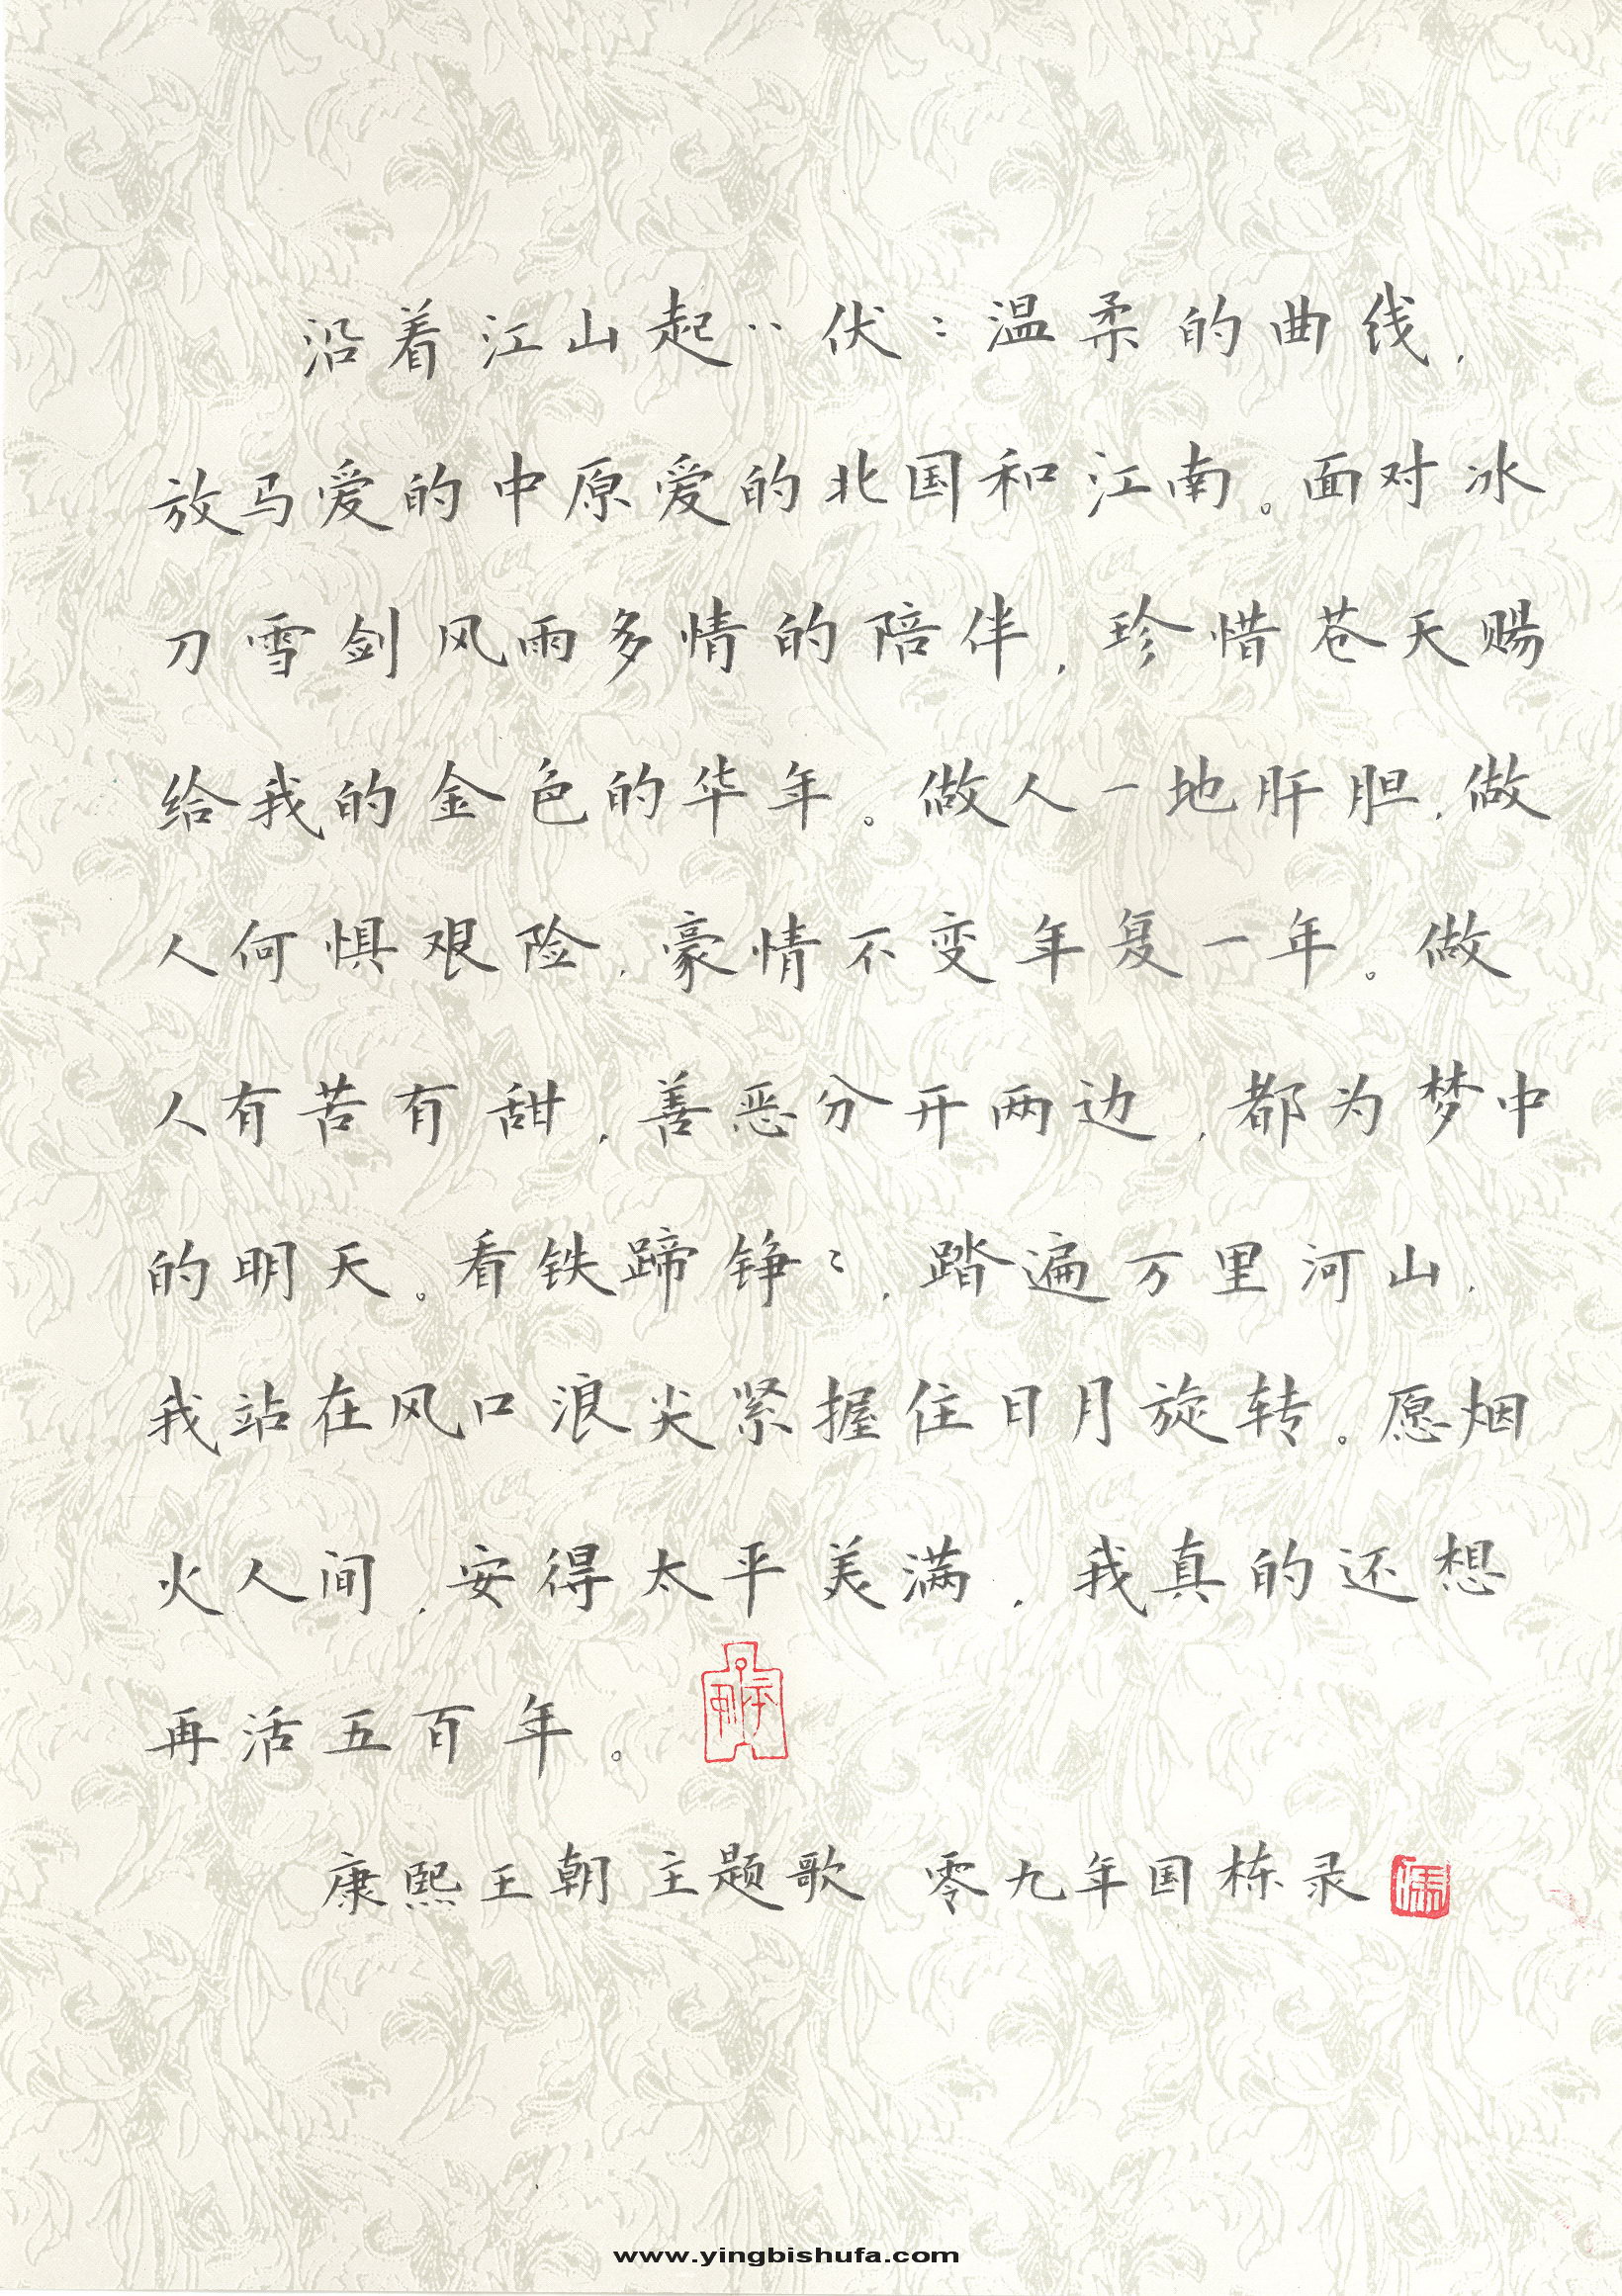 沿着江山起〻伏〻温柔的曲线，
放马爱的中原爱的北国和江南。面对冰
刀雪剑风雨多情的陪伴，珍惜苍天赐
给我的金色的华年。做人一地肝胆，做
人何惧艰险，豪情不变年复一年。做
人有苦有甜，善恶分开两边，都为梦中
的明天。看铁蹄铮〻，踏遍万里河山，
我站在风口浪尖紧握住日月旋转。愿烟
火人间，安得太平美满，我真的还想
再活五百年。
康熙王朝主题歌 零九年国栋录
www.yingbishufa.com